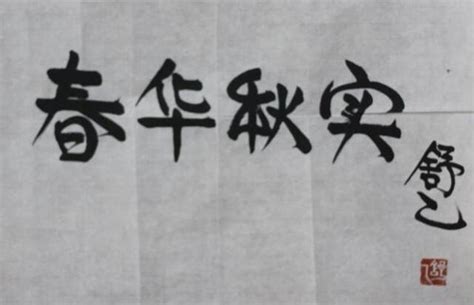 春华秋实
舒乙